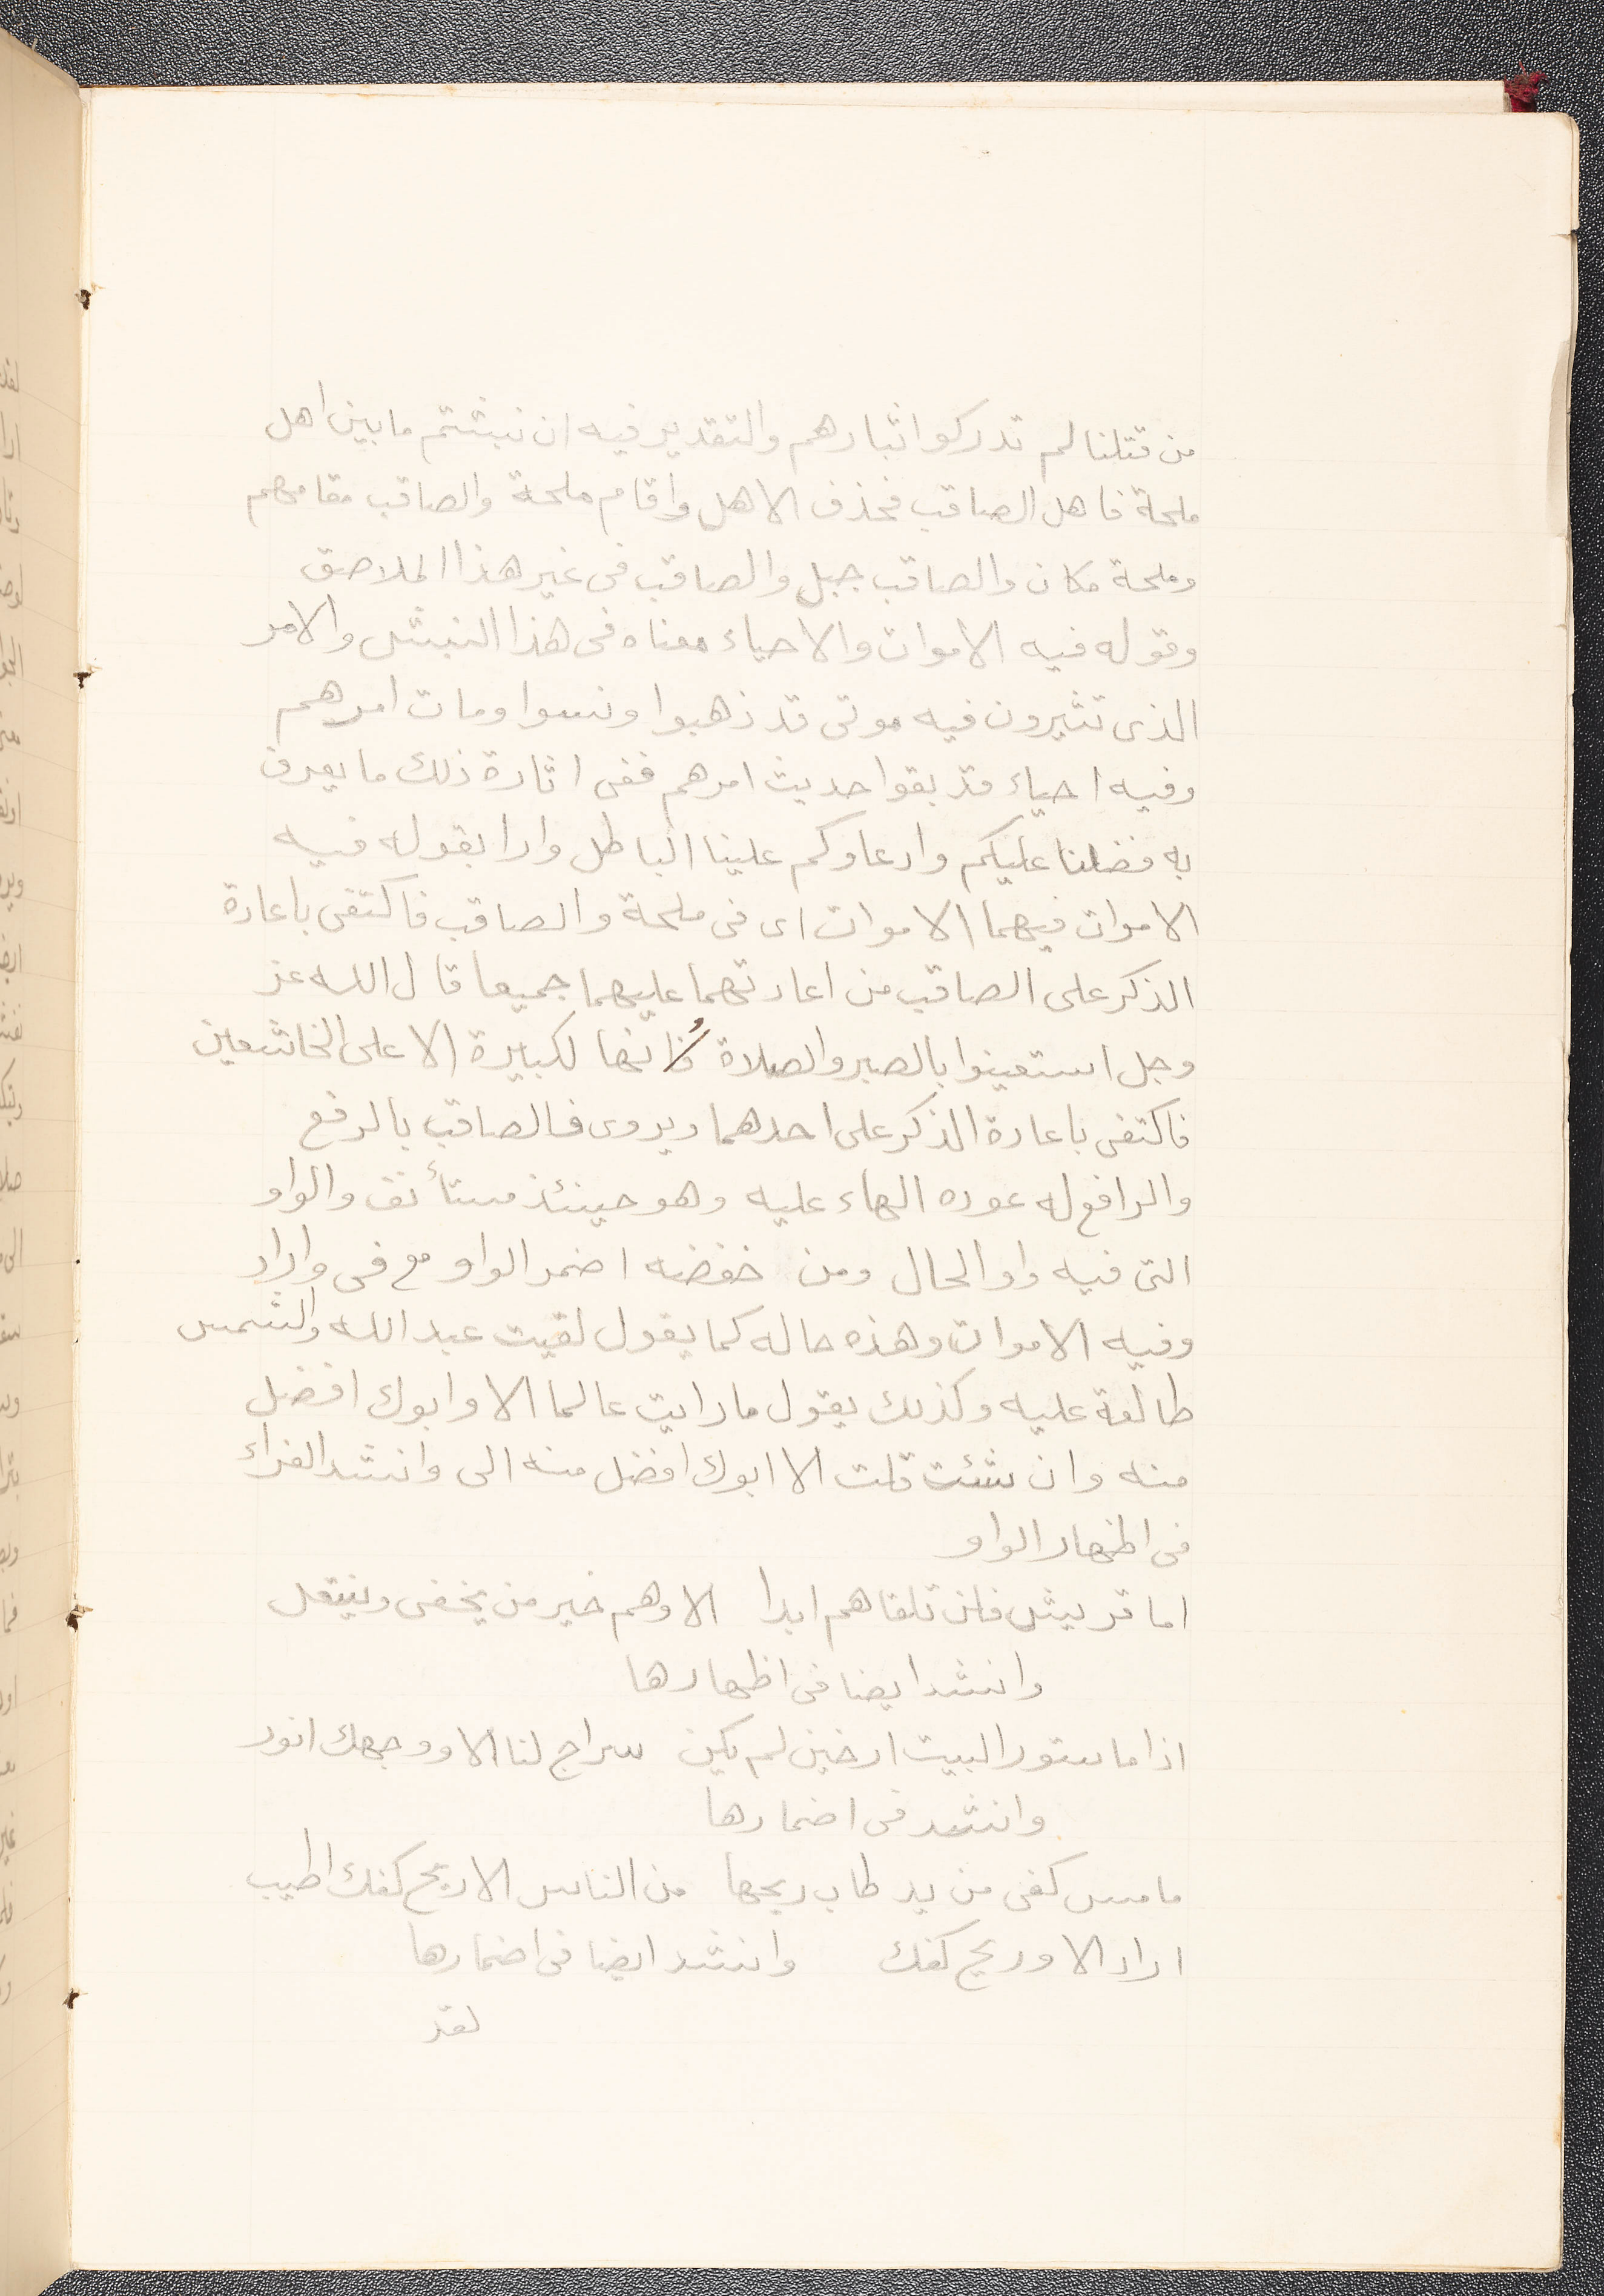 من قتلنا لم تدركوا اثبارهم والتقدير فيه ان نبشتم ما بين اهل
ملحة فاهل الصاقب فحذف الاهل واقام ملحة والصاقب مقامهم
وملحة مكان والصاقب جبل والصاقب فى غير هذا الملاصق
وقوله فيه الاموات والاحياء معناه فى هذا النبش والامر
الذى تثيرون فيه موتى قد ذهبوا ونسوا ومات امرهم
وفيه احياء قد بقوا حديث امرهم ففى اثارة ذلك ما يعرف
به فضلنا عليكم وادعاوكم علينا الباطل وارا بقوله فيه
الاموات فيهما الاموات اى فى ملحة والصاقب فاكتفى باعادة
الذكر على الصاقب من اعادتهما عليهما جميعا قال الله عز
وجل استعينوا بالصبر والصلاة وانها لكبيرة الا على الخاشعين
فاكتفى باعادة الذكر على احدهما ويروى فالصاقب بالرفع
والرافع له عوده الهاء عليه وهو حينئذ مستأنف والواو
التى فيه واو الحال ومن خفضه اضمر الواو مع فى واراد
وفيه الاموات وهذه حاله كما يقول لقيت عبد الله والشمس
طالعة عليه وكذلك يقول ما رايت عالما الا وابوك افضل
منه وان شئت قلت الا ابوك افضل منه الى وانشد الفراء
فى اظهار الواو
اما قريش فلن تلقاهم ابدا الا وهم خير من يخفى وينتعل
وانشد ايضا فى اظهارها
اذا ما ستور البيت ارخين لم يكن سراج لنا الا ووجهك انور
وانشد فى اضمارها
ما مس كفى من يد طاب ريحها من الناس الا ريح كفك اطيب
اراد الا وريح كفك وانشد ايضا فى اضمارها
لقد